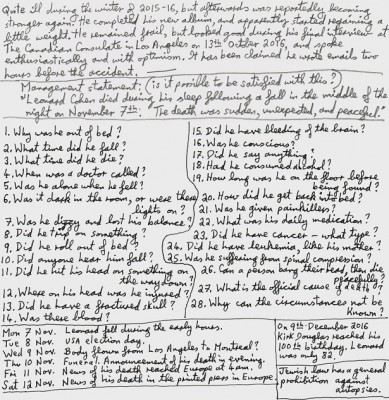 Quite ill during the winter of 2015-16, but afterwards was reportedly becoming
stronger again. He completed his new album, and apparently started regaining a
little weight. He remained frail, but looked good during his final interview at
The Canadian Consulate in Los Angeles on 13th October 2016, and spoke
enthusiastically and with optimism. It has been claimed he wrote emails two
hours before the accident.
Management statement; (is it possible to be satisfied with this?)
"Leonard Cohen died during his sleep following a fall in the middle of the
night on November 7th. The death was sudden, unexpected, and peaceful."
1. Why was he out of bed?
2. What time did he fall?
3. What time did he die?
4. When was a doctor called?
5. Was he alone when he fell?
6. Was it dark in the room, or were there
lights on?
7. Was he dizzy and lost his balance?
8. Did he trip on something?
9. Did he roll out of bed?
10. Did anyone hear him fall?
11. Did he hit his head on something on
the way down?
12. Where on his head was he injured?
13. Did he have a fractured skull?
14. Was there blood?
15. Did he have bleeding of the brain?
16. Was he conscious?
17. Did he say anything?
18. Had he consumed alcohol?
19. How long was he on the floor before
being found?
20. How did he get back into bed?
21. Was he given painkillers?
22. What was his daily medication?
23. Did he have cancer - what type?
24. Did he have leukemia, like his mother?
25. Was he suffering from spinal compression?
26. Can a person bang their head, then die
peacefully?
27. What is the official cause of death?
28. Why can the circumstances not be
known?
Mon 7 Nov. Leonard fell during the early hours.
Tue 8 Nov. USA election day.
Wed 9 Nov. Body flown from Los Angeles to Montreal?
Thu 10 Nov. Funeral. Announcement of his death in evening.
Fri 11 Nov. News of his death reached Europe at 4am.
Sat 12 Nov. News of his death in the printed press in Europe.
On 9th December 2016
Kirk Douglas reached his
100th birthday. Leonard
was only 82.
Jewish law has a general
prohibition against
autopsies.